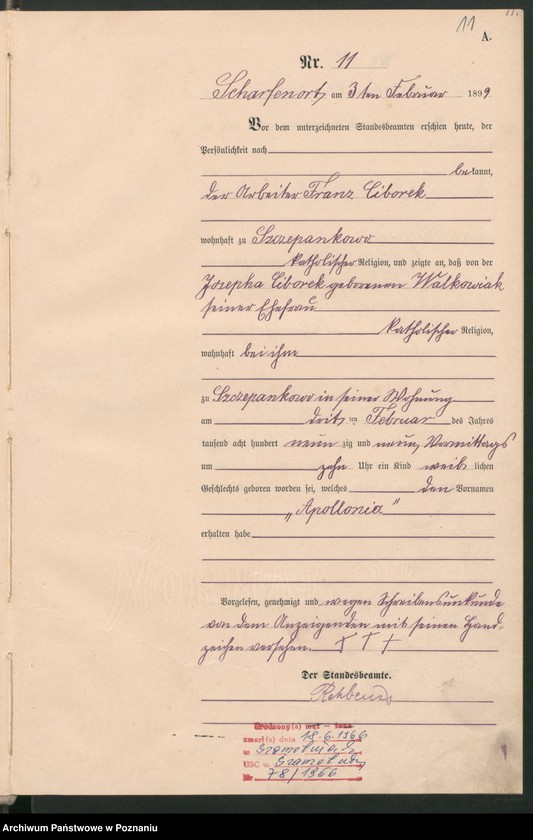 11
A.
Nr. 11
Scharfenort, am 3ten Februar 1899
Vor dem unterzeichneten Standesbeamten erschien heute, der
Persönlichkeit nach
bekannt,
der Arbeiter Franz Ciborek
wohnhaft zu Szczepankowo
katholischer Religion, und zeigte an, daß von der
Josepha Ciborek geborenen Walkowiak
seiner Ehefrau
katholischer Religion,
wohnhaft bei ihm
zu Szczepankowo in seiner Wohnung
am dritten Februar des Jahres
tausend acht hundert neunzig und neun, Vormittags
um zehn Uhr ein Kind weiblichen
Geschlechts geboren worden sei, welches den Vornamen
„Apollonia"
erhalten habe
Vorgelesen, genehmigt und wegen Schreibensunkunde
von dem Anzeigenden mit seinen Hand-
zeichen versehen. † † †
Der Standesbeamte.
Urodzony(a) mąż – żona
zmarł(a) dnia 18.6.1966
w Szamotułach
USC w Szamotuły
Nr 78/1966
Archiwum Państwowe w Poznaniu